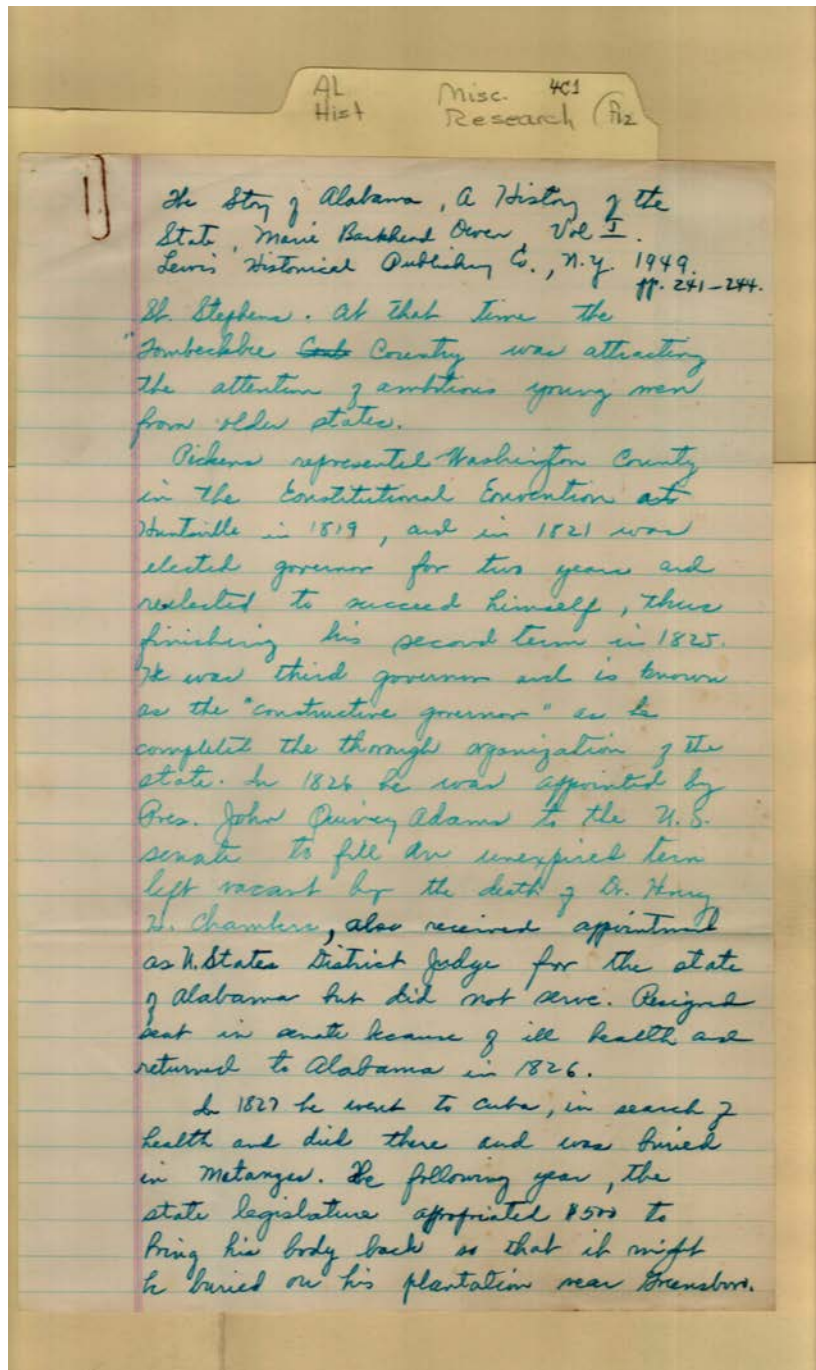 AL Misc. 4C1
Hist Research P12
The Story of Alabama, A History of the
State, Marie Bankhead Owen, Vol I.
Lewis Historical Publishing Co., N.Y. 1949.
pp. 241-244.
St. Stephens. At that time the
"Tombeckbee Country was attracting
the attention of ambitious young men
from older states.
Pickens represented Washington County
in the Constitutional Convention at
Huntsville in 1819, and in 1821 was
elected governor for two years and
reelected to succeed himself, thus
finishing his second term in 1825.
He was third governor and is known
as the "constructive governor" as he
completed the thorough organization of the
state. In 1826 he was appointed by
Pres. John Quincy Adams to the U.S.
senate to fill an unexpired term
left vacant by the death of Dr. Henry
Chambers, also received appointment
as U. States District Judge for the state
of Alabama but did not serve. Resigned
seat in senate because of ill health and
returned to Alabama in 1826.
In 1827 he went to Cuba, in search of
health and died there and was buried
in Matanzas. The following year, the
state legislature appropriated $500 to
bring his body back so that it might
be buried on his plantation near Greensboro.